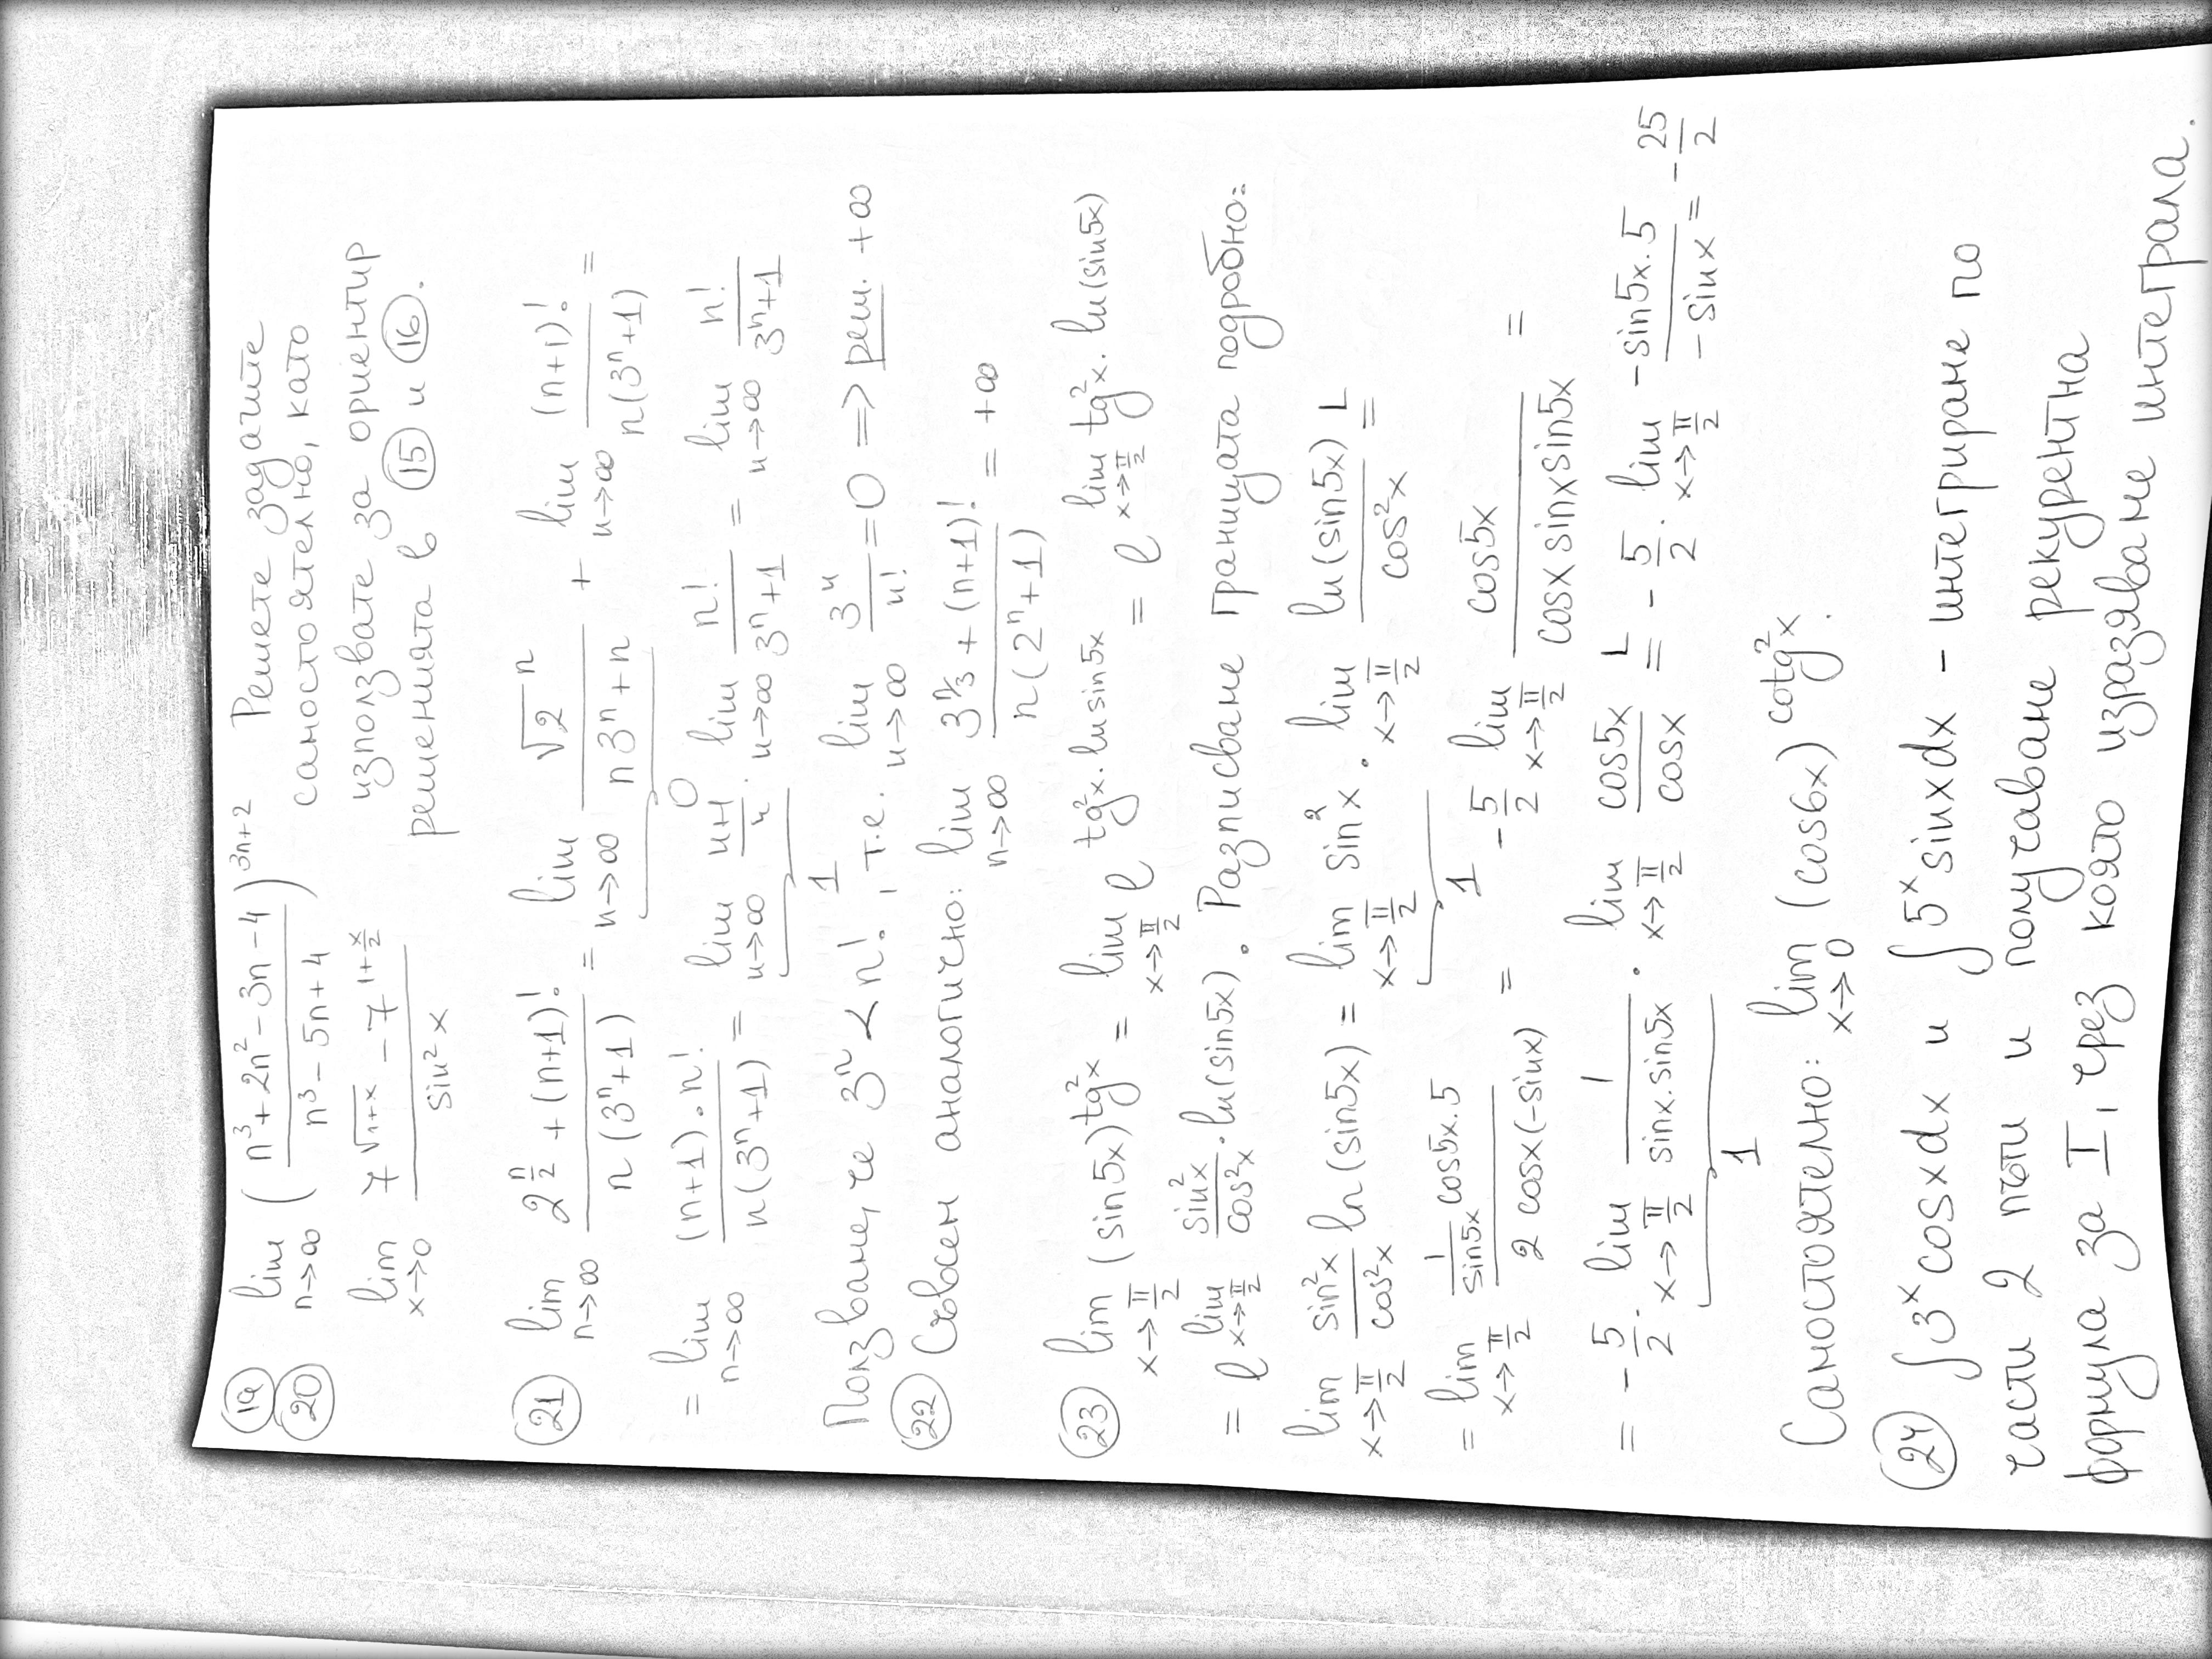 (19) lim n→∞ ((n³+2n²−3n−4)/(n³−5n+4))^(3n+2) Решете задачите
(20) самостоятелно, като
lim x→0 (7^√(1+x) − 7^(1+x/2))/(sin²x) използвате за ориентир
решенията в (15) и (16).
(21) lim n→∞ (2^(n/2) + (n+1)!)/(n(3ⁿ+1)) = lim n→∞ (√2ⁿ)/(n3ⁿ+n) + lim n→∞ (n+1)!/(n(3ⁿ+1)) =
0
= lim n→∞ ((n+1).n!)/(n(3ⁿ+1)) = lim n→∞ (n+1)/n . lim n→∞ n!/(3ⁿ+1) = lim n→∞ n!/(3ⁿ+1)
1
Ползваме, че 3ⁿ < n!, т.е. lim n→∞ 3ⁿ/n! = 0 => реш. +∞
(22) Съвсем аналогично: lim n→∞ (3^(n/3) + (n+1)!)/(n(2ⁿ+1)) = +∞
(23) lim x→π/2 (sin5x)^(tg²x) = lim x→π/2 e^(tg²x.ln sin5x) = e^(lim x→π/2 tg²x.ln(sin5x))
= e^(lim x→π/2 sin²x/cos²x.ln(sin5x)). Разписваме границата подробно:
lim x→π/2 sin²x/cos²x ln(sin5x) = lim x→π/2 sin²x . lim x→π/2 ln(sin5x)/cos²x L=
1
= lim x→π/2 (1/sin5x cos5x.5)/(2 cosx(−sinx)) = −5/2 lim x→π/2 cos5x/(cosx sinx sin5x) =
= −5/2. lim x→π/2 1/(sinx.sin5x) . lim x→π/2 cos5x/cosx L= −5/2. lim x→π/2 (−sin5x.5)/(−sinx) = −25/2
1
Самостоятелно: lim x→0 (cos6x)^(cotg²x).
(24) ∫3ˣcosxdx и ∫5ˣsinxdx – интегриране по
части 2 пъти и получаваме рекурентна
формула за I, чрез която изразяваме интеграла.